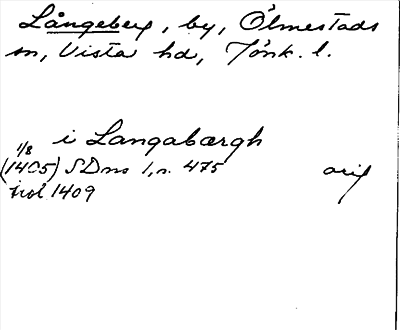 Långeberg, by, Ölmestads
sn, Vista hd, Jönk. l.
i Langabærgh
1/8
(1405) SDns 1, n. 475 orig
trol 1409